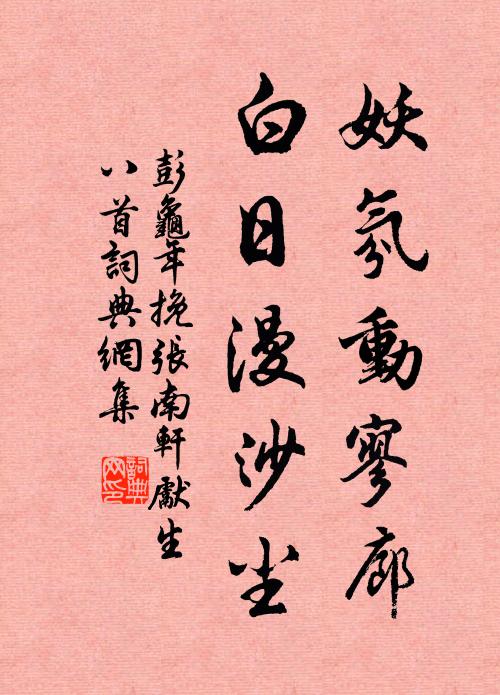 妖氛動寥廓
白日漫沙塵
彭龜年挽張南軒獻生
八首詞典網集
詞典
网印